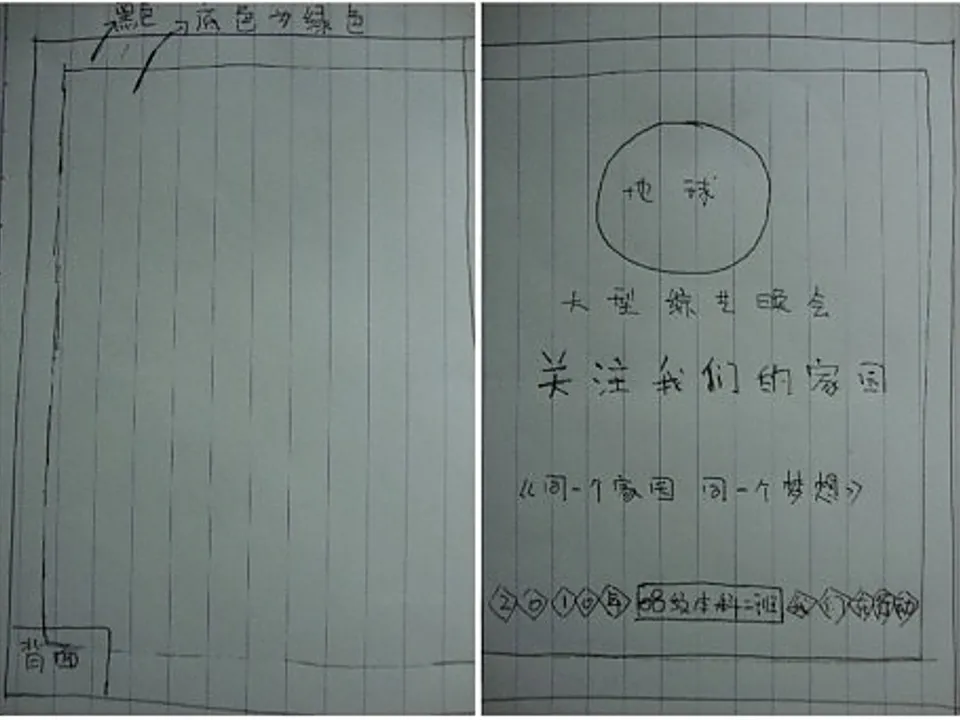 黑色 底色为绿色
背面
地球
大型综艺晚会
关注我们的家园
《同一个家园 同一个梦想》
2010年 08级本科二班 我们在行动